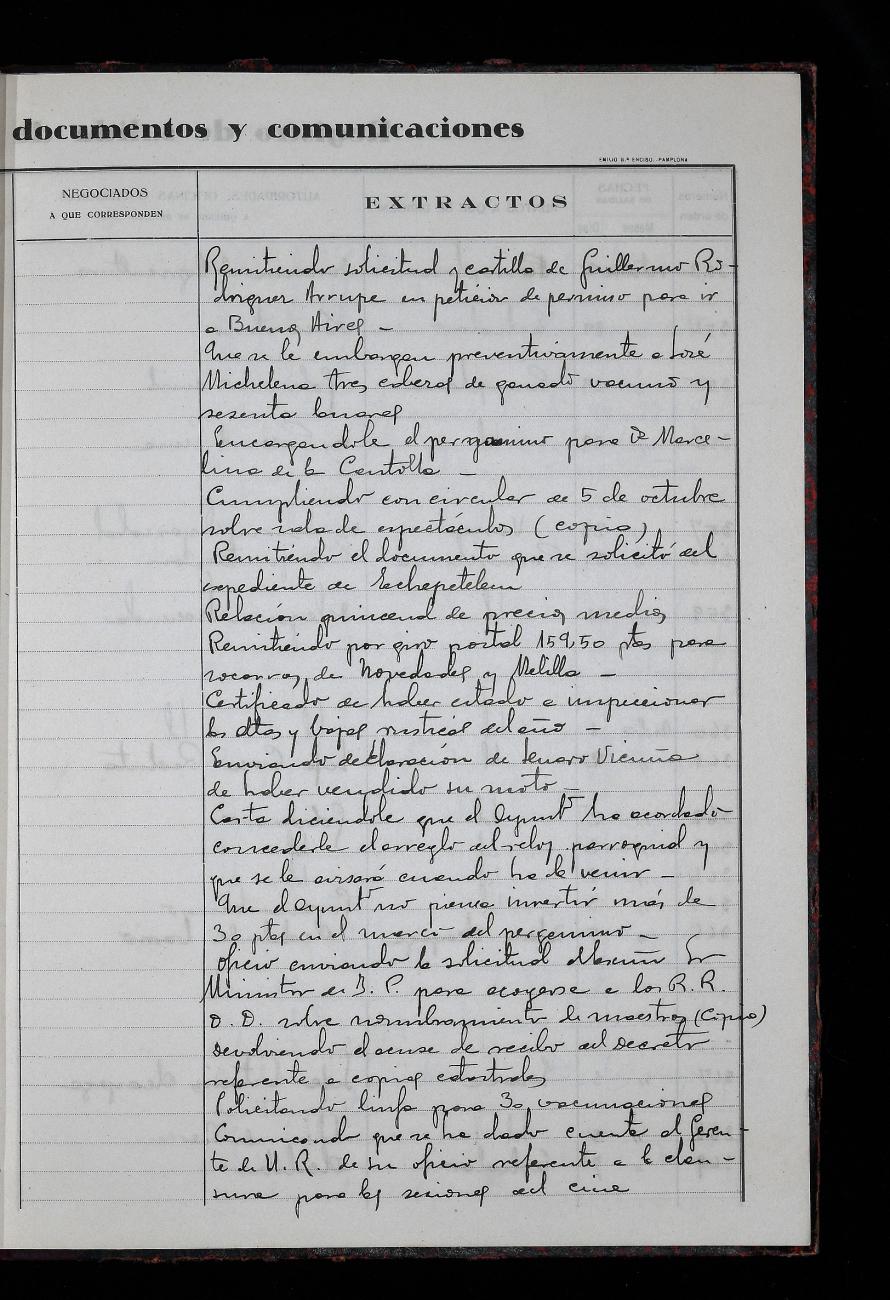 documentos y comunicaciones
EMILIO G.ª ENCISO.-PAMPLONA
NEGOCIADOS
A QUE CORRESPONDEN
EXTRACTOS
Remitiendo solicitud y cartilla de Guillermo Ro-
driguez Arrupe en petición de permiso para ir
a Buenos Aires -
Que se le embargan preventivamente a José
Michelena tres cabezas de ganado vacuno y
sesenta lanares
Encargandole el pergamino para Dª Marce-
lina de la Cantolla -
Cumpliendo con circular de 5 de octubre
sobre sala de espectáculos (copia)
Remitiendo el documento que se solicitó del
expediente de Echepetelecu
Relación quincenal de precios medios
Remitiendo por giro postal 159,50 ptas para
socorros de Novedades y Melilla -
Certificado de haber estado a inspeccionar
las altas y bajas rusticas del año -
Enviando declaración de Genaro Vicuña
de haber vendido su moto -
Carta diciendole que el Ayuntº ha acordado
concederle el arreglo del reloj parroquial y
que se le avisará cuando ha de venir -
Que el Ayuntº no piensa invertir más de
30 ptas en el marco del pergamino -
Oficio enviando la solicitud al Excmº Sr
Ministro de I. P. para acogerse a los R. R.
D. D. sobre nombramiento de maestros (Copia)
Devolviendo el acuse de recibo del Decreto
referente a copias catastrales
Solicitando linfa para 30 vacunaciones
Comunicando que se ha dado cuenta al Geren-
te de U. R. de su oficio referente a la clau-
sura para las sesiones del cine